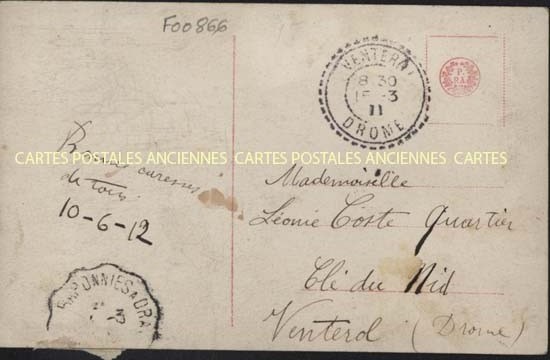 F00866
VENTEROL
8 30
15-3
11
DROME
P.
RA
Bonnes caresses
de tous
10-6-12
CARTES POSTALES ANCIENNES CARTES POSTALES ANCIENNES CARTES
Mademoiselle
Léonie Coste Quartier
Clé du Nid
Venterol (Drome)